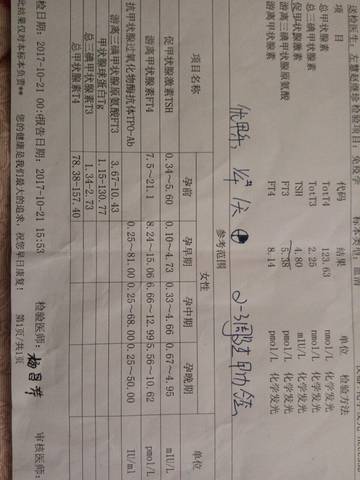 送检医生: 左慧
项 目 代码 结果 单位 检验方法
总甲状腺素 TotT4 123.63 nmol/L 化学发光
总三碘甲状腺原氨酸 TotT3 2.25 nmol/L 化学发光
促甲状腺激素 TSH 4.80 mIU/L 化学发光
游离三碘甲状腺原氨酸 FT3 5.38 pmol/L 化学发光
游离甲状腺素 FT4 8.14 pmol/L 化学发光
优甲乐 1/4 2-3周
参考范围
项目名称 女性 单位
孕前 孕早期 孕中期 孕晚期
促甲状腺激素TSH 0.34~5.60 0.10~4.73 0.33~4.66 0.67~4.95 mIU/L
游离甲状腺素FT4 7.5~21.1 8.24~15.06 6.66~12.99 5.56~10.62 pmol/L
抗甲状腺过氧化物酶抗体TPO-Ab 0.25~81.00 0.25~68.00 0.25~50.00 IU/ml
游离三碘甲状腺原氨酸FT3 3.67-10.43
甲状腺球蛋白Tg 1.15-130.77
总三碘甲状腺素T3 1.34-2.73
总甲状腺素T4 78.38-157.40
检日期: 2017-10-21 00: 报告日期: 2017-10-21 15:53 检验医师: 审核医师:
此结果仅对本标本负责** 您的健康是我们最大的追求，祝您早日康复! 第1页/共1页